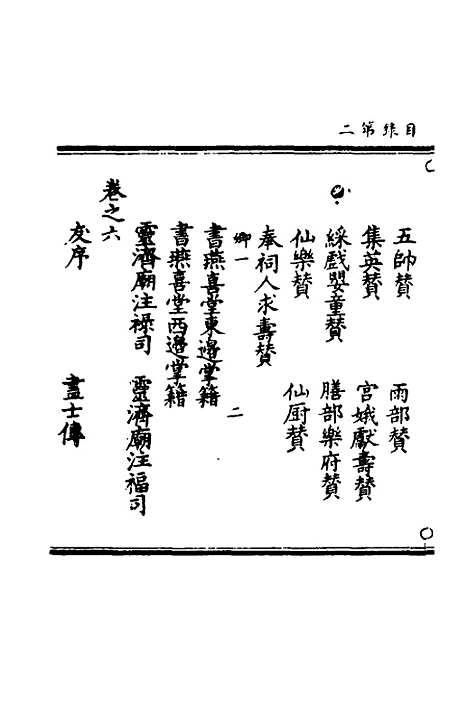 目錄第二
五帥贊 雨部贊
集英贊 宮娥獻壽贊
綵戲嬰童贊 膳部樂府贊
仙樂贊 仙厨贊
奉祠人求壽贊
鄉一 二
書燕喜堂東邊掌籍
書燕喜堂西邊掌籍
靈濟廟注祿司 靈濟廟注福司
卷之六
友序 畫士傳